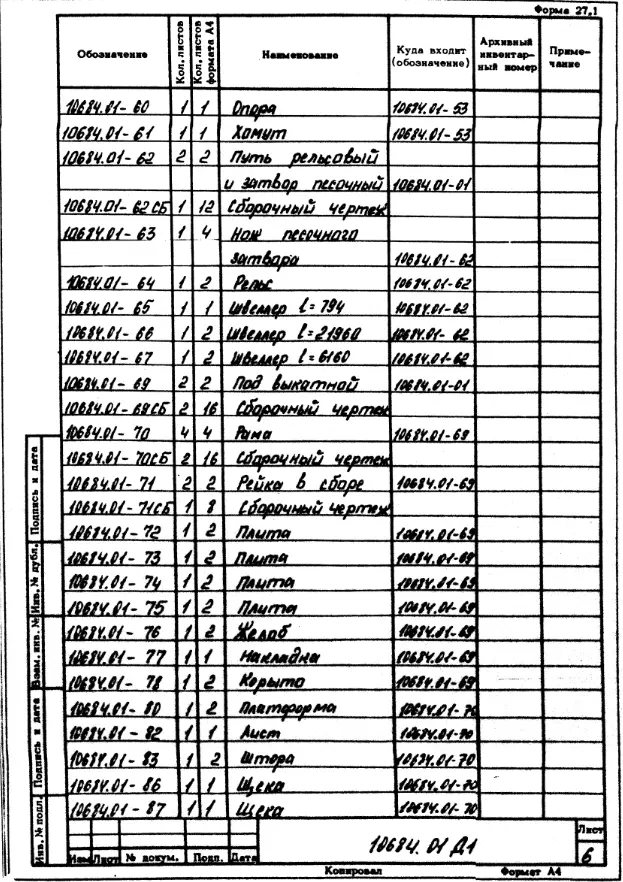 Форма 27,1
Обозначение Кол. листов Кол. листов формата А4 Наименование Куда входит (обозначение) Архивный инвентарный номер Примечание
10684.01-60 1 1 Опора 10684.01-53
10684.01-61 1 1 Хомут 10684.01-53
10684.01-62 2 2 Путь рельсовый
и затвор песочный 10684.01-01
10684.01-62СБ 1 12 Сборочный чертеж
10684.01-63 1 4 Нож песочного
затвора 10684.01-62
10684.01-64 1 2 Рельс 10684.01-62
10684.01-65 1 1 Швеллер l=794 10684.01-62
10684.01-66 1 2 Швеллер l=21960 10684.01-62
10684.01-67 1 2 Швеллер l=6160 10684.01-62
10684.01-69 2 2 Под выкатной 10684.01-01
10684.01-69СБ 2 16 Сборочный чертеж
10684.01-70 4 4 Рама 10684.01-69
10684.01-70СБ 2 16 Сборочный чертеж
10684.01-71 2 2 Рейка в сборе 10684.01-69
10684.01-71СБ 1 8 Сборочный чертеж
10684.01-72 1 2 Плита 10684.01-69
10684.01-73 1 2 Плита 10684.01-69
10684.01-74 1 2 Плита 10684.01-69
10684.01-75 1 2 Плита 10684.01-69
10684.01-76 1 2 Желоб 10684.01-69
10684.01-77 1 1 Накладка 10684.01-69
10684.01-78 1 2 Корыто 10684.01-69
10684.01-80 1 2 Платформа 10684.01-70
10684.01-82 1 1 Лист 10684.01-70
10684.01-83 1 2 Штора 10684.01-70
10684.01-86 1 1 Щека 10684.01-70
10684.01-87 1 1 Щека 10684.01-70
Подпись и дата
Инв. № дубл.
Взам. инв. №
Подпись и дата
Инв. № подл.
Изм Лист № докум. Подп. Дата
10684.01 Д1
Лист
6
Копировал Формат А4